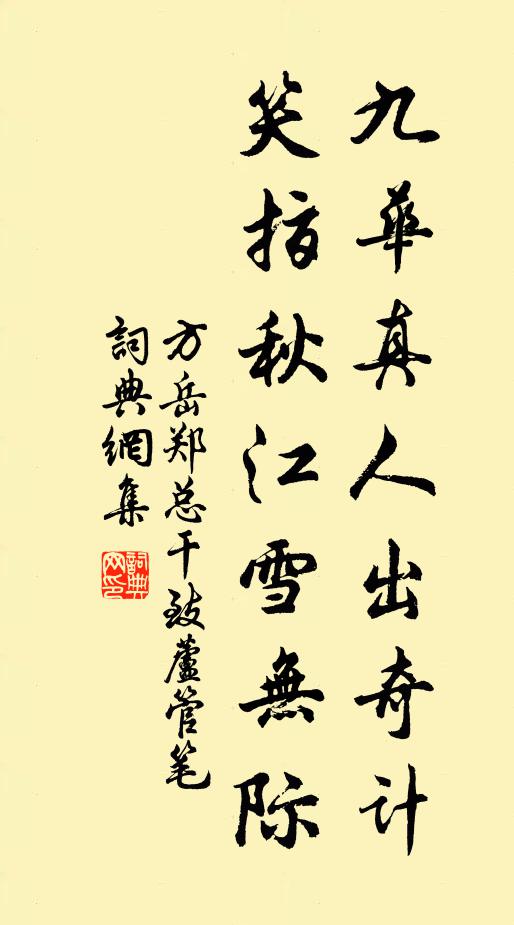 九華真人出奇计
笑指秋江雪無际
方岳郑总干致蘆管笔
詞典網集
詞典网印